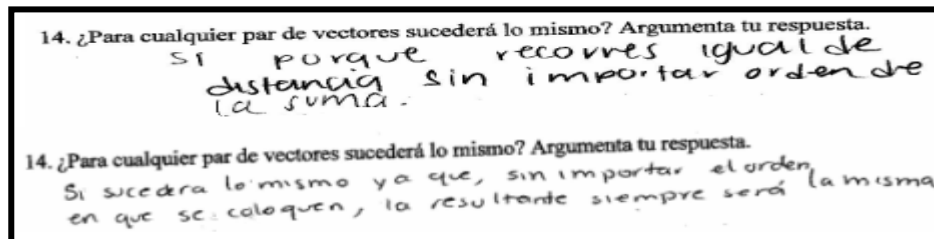 14. ¿Para cualquier par de vectores sucederá lo mismo? Argumenta tu respuesta.
SI porque recorres igual de
distancia sin importar orden de
la suma.
14. ¿Para cualquier par de vectores sucederá lo mismo? Argumenta tu respuesta.
Si sucedera lo mismo ya que, sin importar el orden,
en que se coloquen, la resultante siempre será la misma